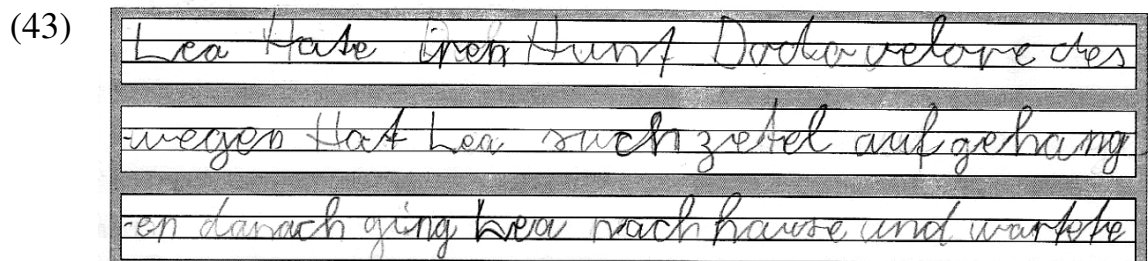 (43)
Lea Hate iren Hunt Dodo velore des
-wegen Hat Lea suchzetel aufgehang
-en danach ging Lea nach hause und wartete